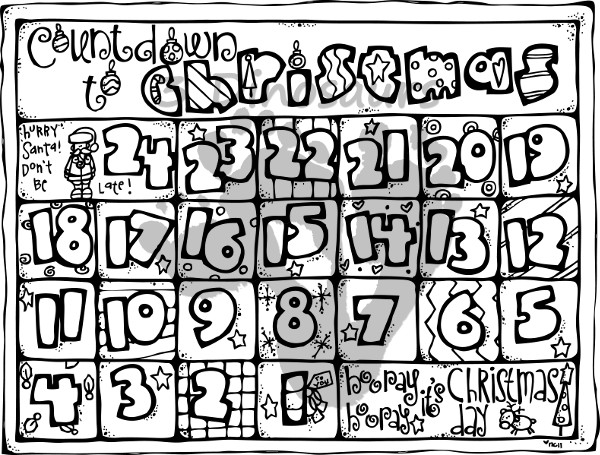 Countdown
to Christmas
hurry
Santa!
Don't
Be
Late!
24 23 22 21 20 19
18 17 16 15 14 13 12
11 10 9 8 7 6 5
4 3 2 1
you
hooray,
hooray, it's
Christmas
day